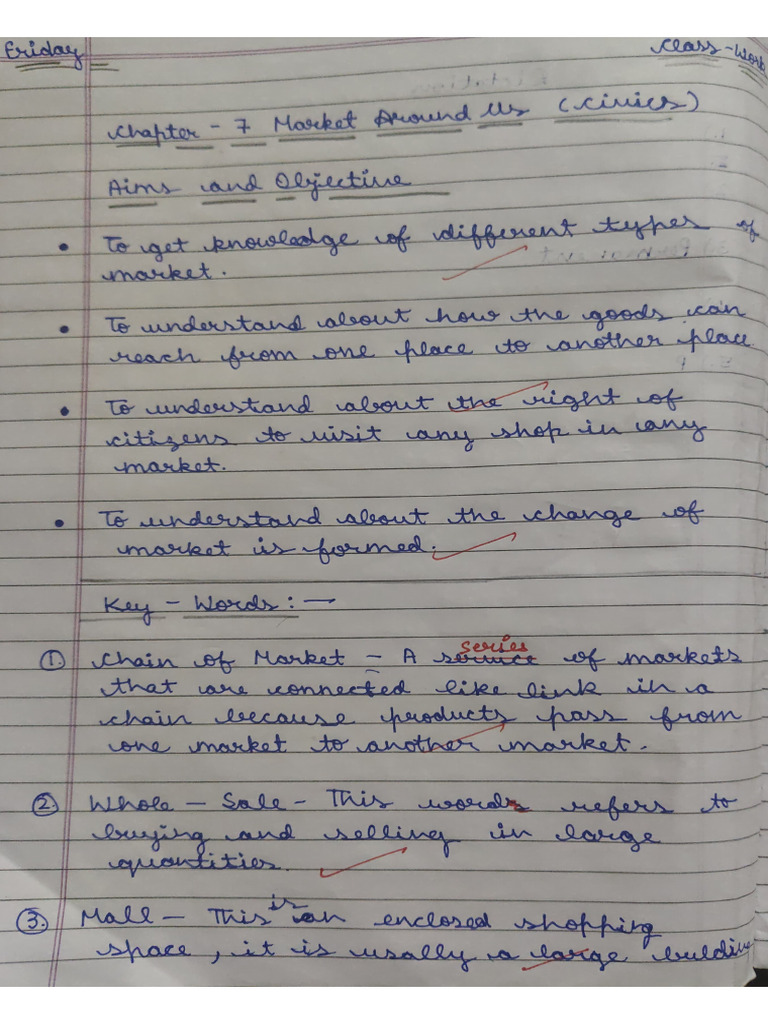 Friday
Class-Work
Chapter - 7 Market Around Us (Civics)
Aims and Objective
• To get knowledge of different types of
market.
• To understand about how the goods can
reach from one place to another place
• To understand about the right of
citizens to visit any shop in any
market.
• To understand about the change of
market is formed.
Key - Words : —
series
① Chain of Market - A of markets
that are connected like link in a
chain because products pass from
one market to another market.
② Whole - Sale - This words refers to
buying and selling in large
quantities.
is
③ Mall - This an enclosed shopping
space, it is usally a large buldding